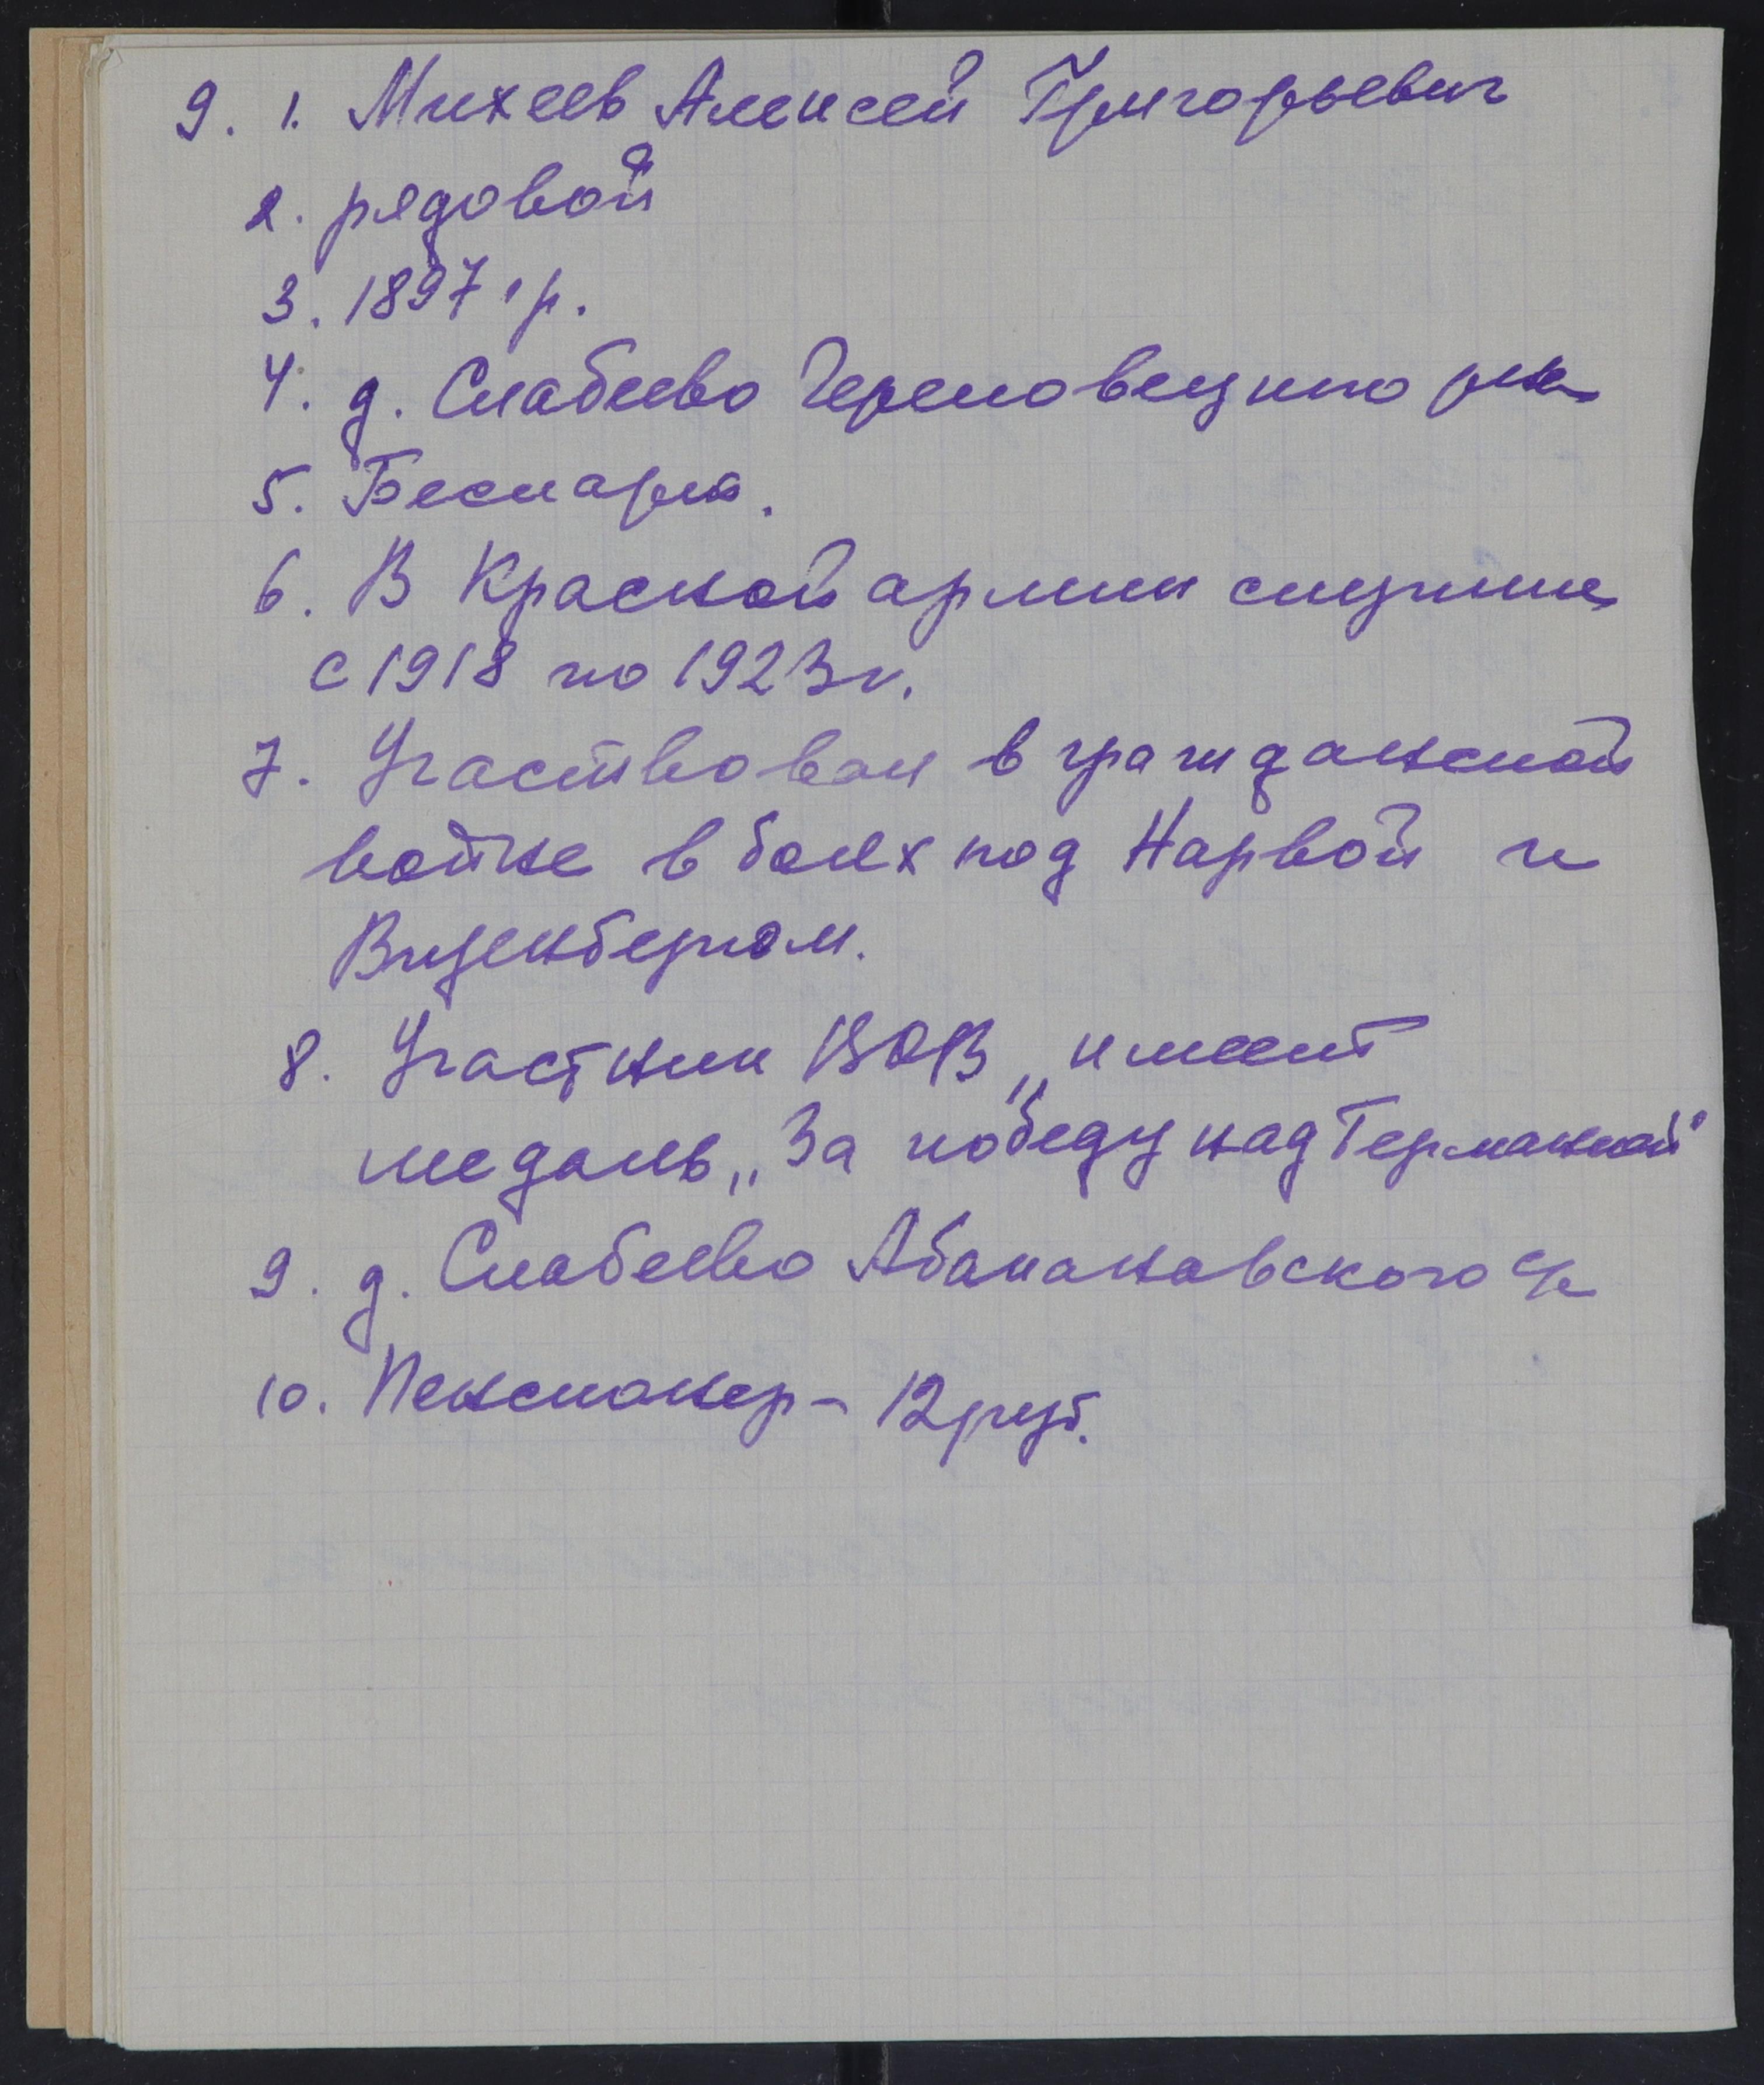 9. 1. Михеев Алексей Григорьевич
2. рядовой
3. 1897 г.р.
4. д. Слабеево Череповецкого р-на
5. Беспарт.
6. В Красной армии служил
с 1918 по 1923 г.
7. Участвовал в гражданской
войне в боях под Нарвой и
Визенбергом.
8. Участник ВОВ, имеет
медаль „За победу над Германией"
9. д. Слабеево Абакановского с/с
10. Пенсионер - 12 руб.